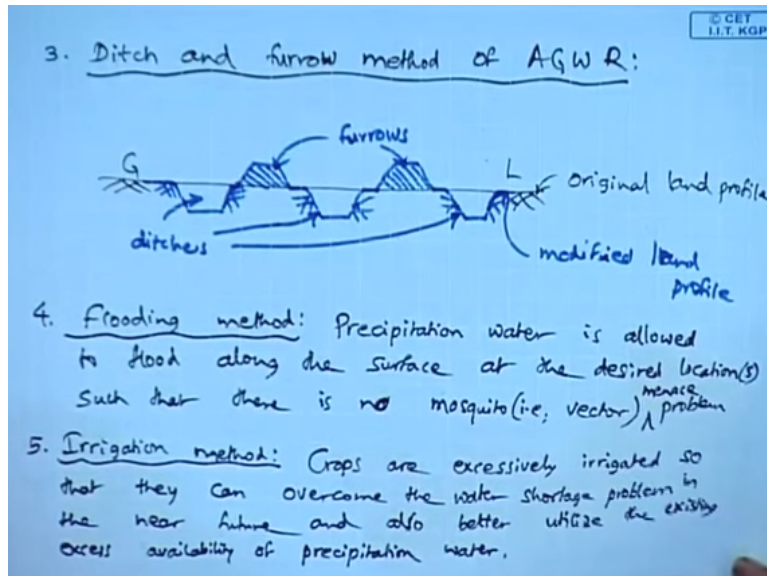 © CET
I.I.T. KGP
3. Ditch and furrow method of AGWR:
furrows
G
L
original land profile
ditchers
modified land
profile
4. Flooding method: Precipitation water is allowed
to flood along the surface at the desired location(s)
such that there is no mosquito (i.e; vector) menace problem
5. Irrigation method: Crops are excessively irrigated so
that they can overcome the water shortage problem in
the near future and also better utilize the existing
excess availability of precipitation water.